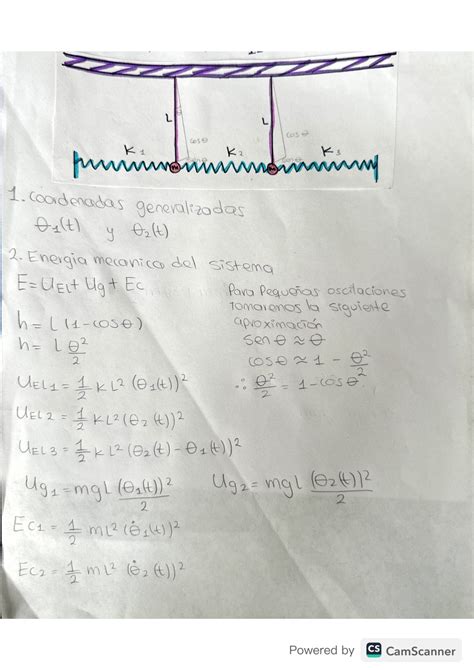 L L
cos θ cos θ
K1 K2 K3
m m
1. Coordenadas generalizadas
θ1(t) y θ2(t)
2. Energia mecanica del sistema
E = UEl + Ug + Ec
Para pequeñas oscilaciones
tomaremos la siguiente
aproximación
h = L (1 - cos θ)
h = L θ²/2
sen θ ≈ θ
cos θ ≈ 1 - θ²/2
∴ θ²/2 = 1 - cos θ
UEL1 = 1/2 K L² (θ1(t))²
UEL2 = 1/2 K L² (θ2(t))²
UEL3 = 1/2 K L² (θ2(t) - θ1(t))²
Ug1 = mgL (θ1(t))²/2 Ug2 = mgL (θ2(t))²/2
Ec1 = 1/2 mL² (θ̇1(t))²
Ec2 = 1/2 mL² (θ̇2(t))²
Powered by CS CamScanner